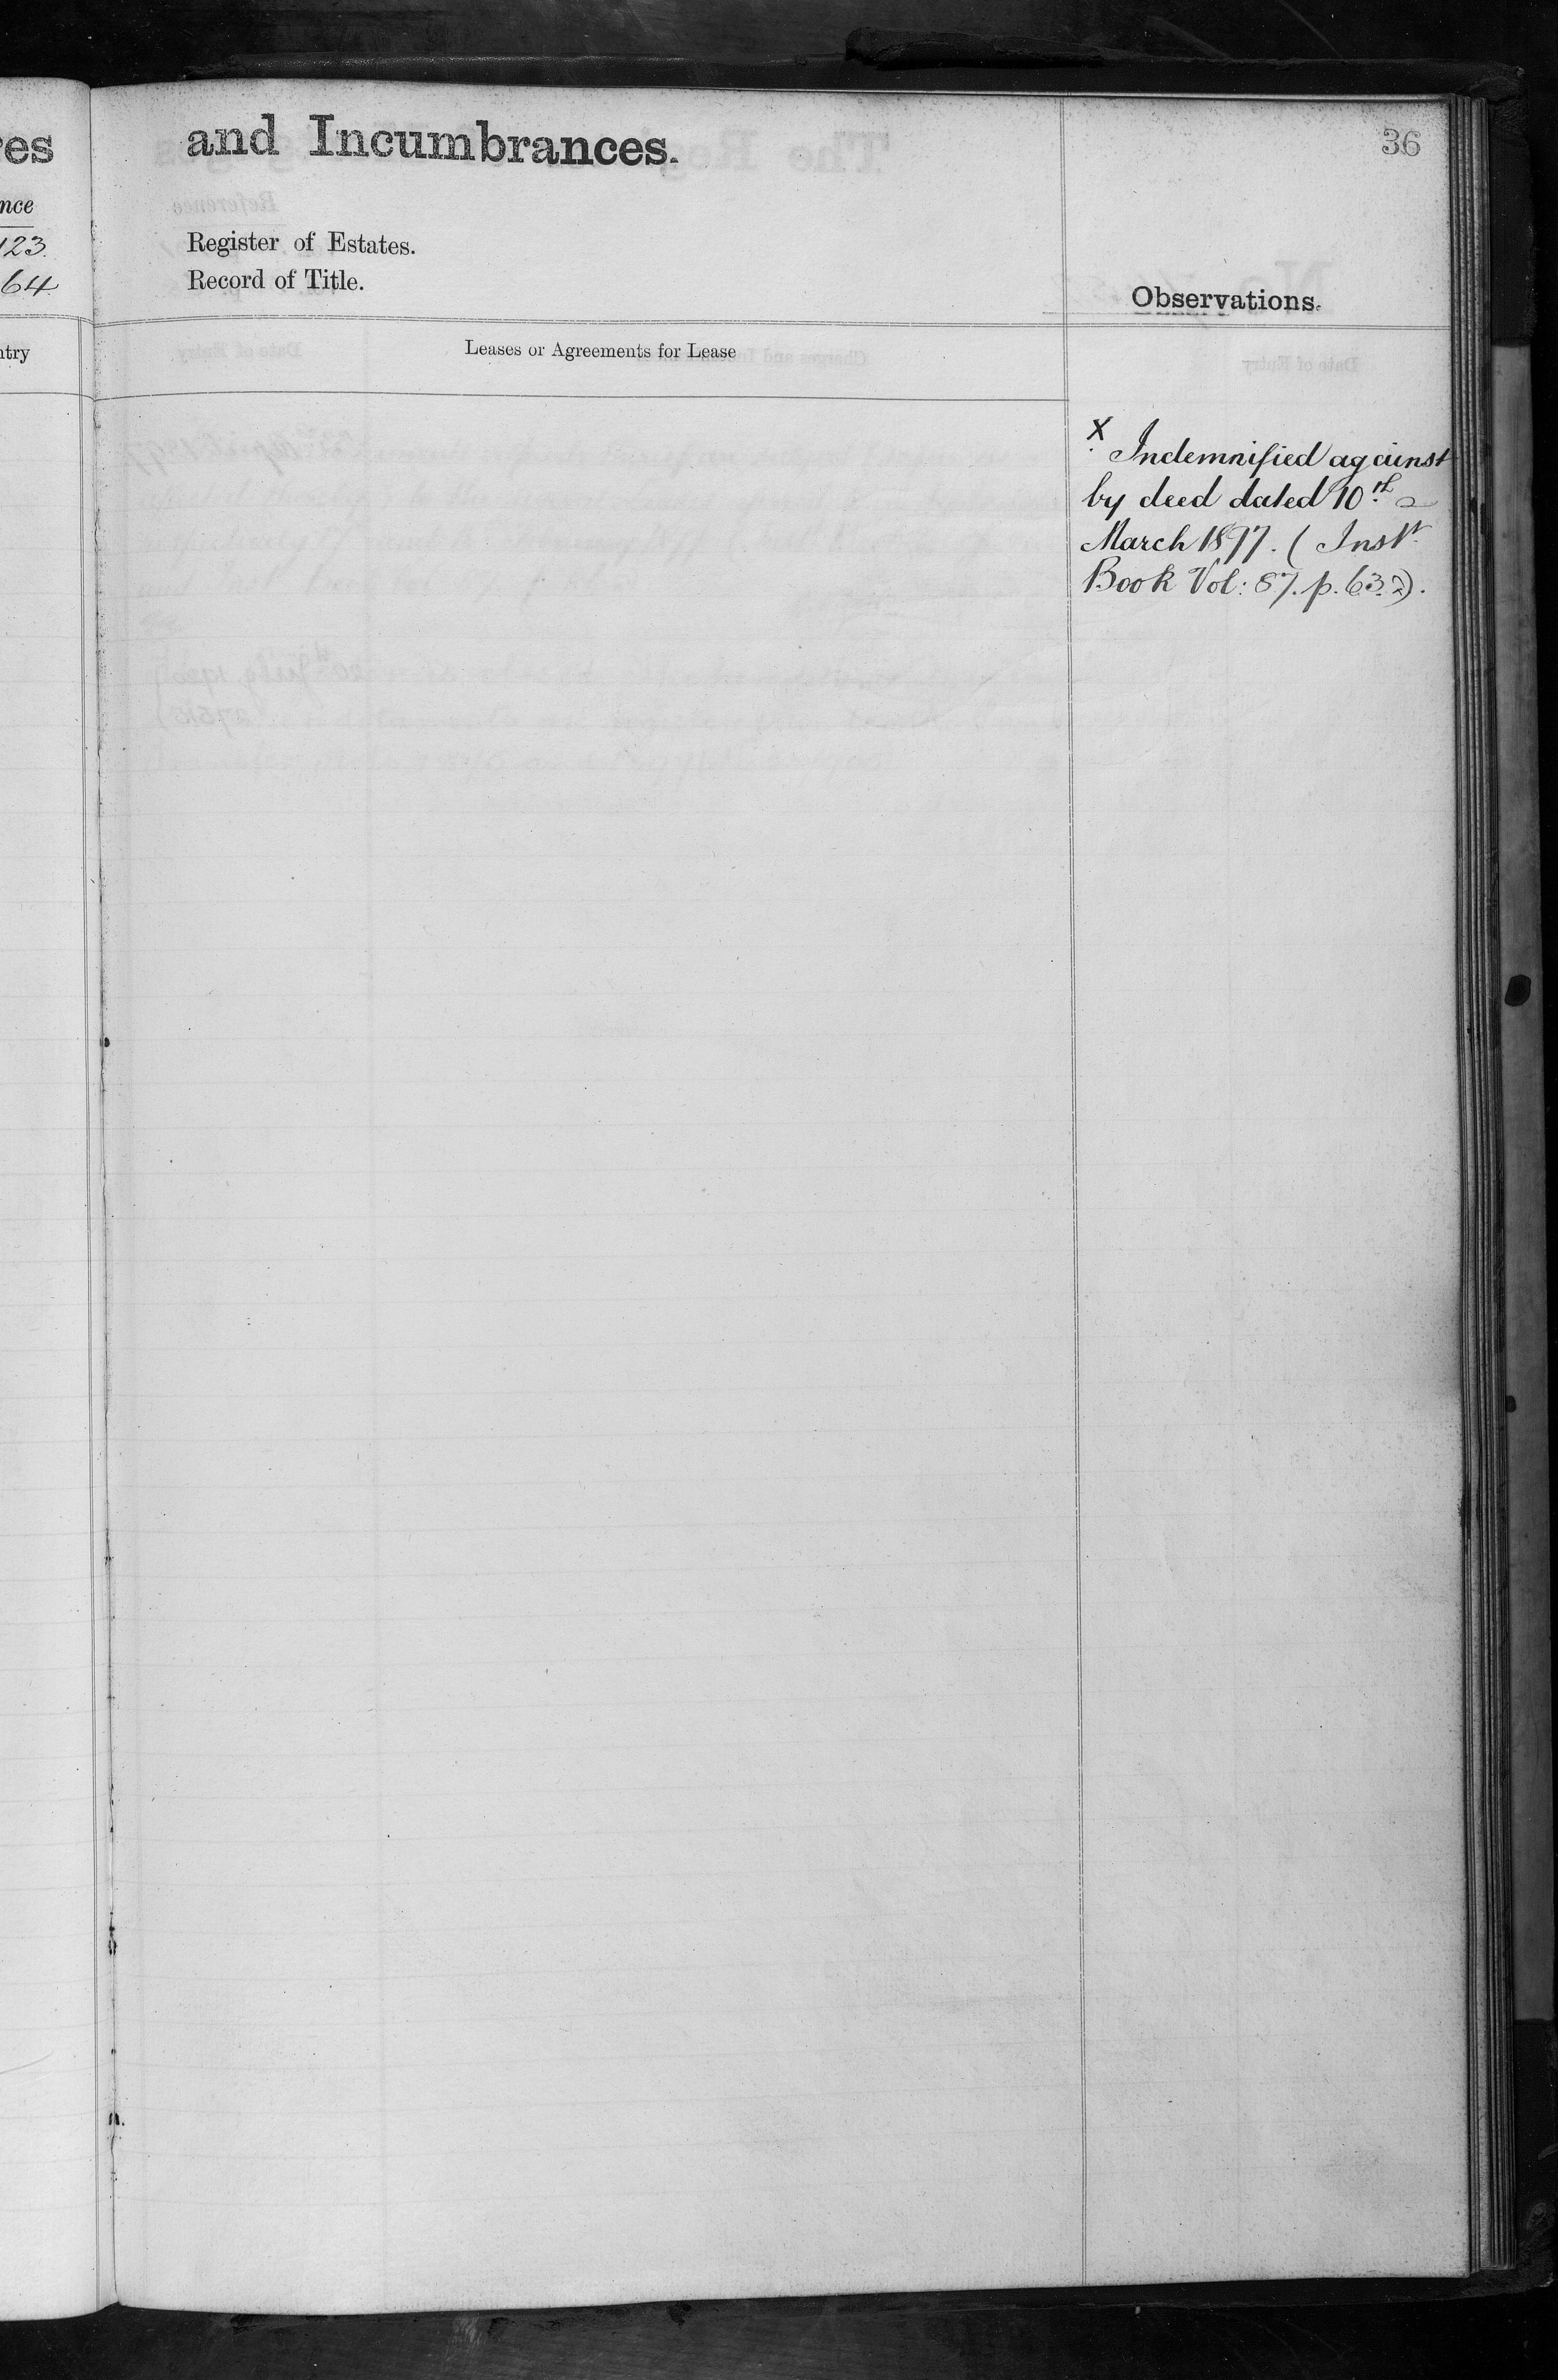 and Incumbrances.
36
Register of Estates.
Record of Title.
Observations.
Leases or Agreements for Lease
x Indemnified against
by deed dated 10th
March 1897. (Inst
Book Vol: 87. p. 632).
nce
123.
64